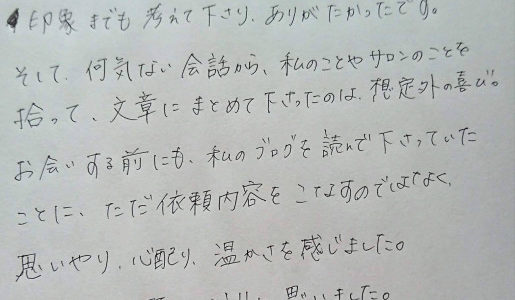 印象までも考えて下さり、ありがたかったです。
そして、何気ない会話から、私のことやサロンのことを
拾って、文章にまとめて下さったのは、想定外の喜び。
お会いする前にも、私のブログを読んで下さっていた
ことに、ただ依頼内容をこなすのではなく、
思いやり、心配り、温かさを感じました。
思いました。